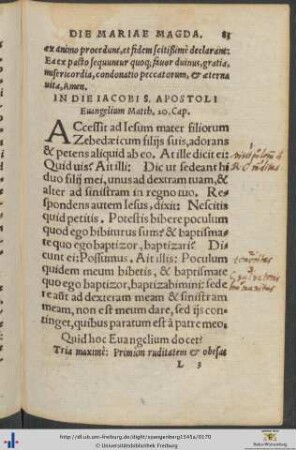 DIE MARIAE MAGDA. 83
ex animo procedunt, et fidem scitissimè declarant:
Ea ex pacto sequuntur quoq; favor divinus, gratia,
misericordia, condonatio peccatorum, & æterna
vita, Amen.
IN DIE IACOBI S. APOSTOLI
Euangelium Matth. 20. Cap.
ACcessit ad Iesum mater filiorum
Zebedæi cum filijs suis, adorans
& petens aliquid ab eo. At ille dicit ei:
Quid uis? Ait illi: Dic ut sedeant hi
duo filij mei, unus ad dextram tuam, &
alter ad sinistram in regno tuo. Re-
spondens autem Iesus, dixit: Nescitis
quid petitis. Potestis bibere poculum
quod ego bibiturus sum? & baptisma-
te quo ego baptizor, baptizari? Di
cunt ei: Possumus. Ait illis: Poculum
quidem meum bibetis, & baptismate
quo ego baptizor, baptizabimini: sede
re aūt ad dexteram meam & sinistram
meam, non est meum dare, sed ijs con-
tinget, quibus paratum est à patre meo.
Quid hoc Euangelium docet?
Tria maximè: Primùm ruditatem &
L 3
http://dl.ub.uni-freiburg.de/diglit/spangenberg1545a/0170
© Universitätsbibliothek Freiburg